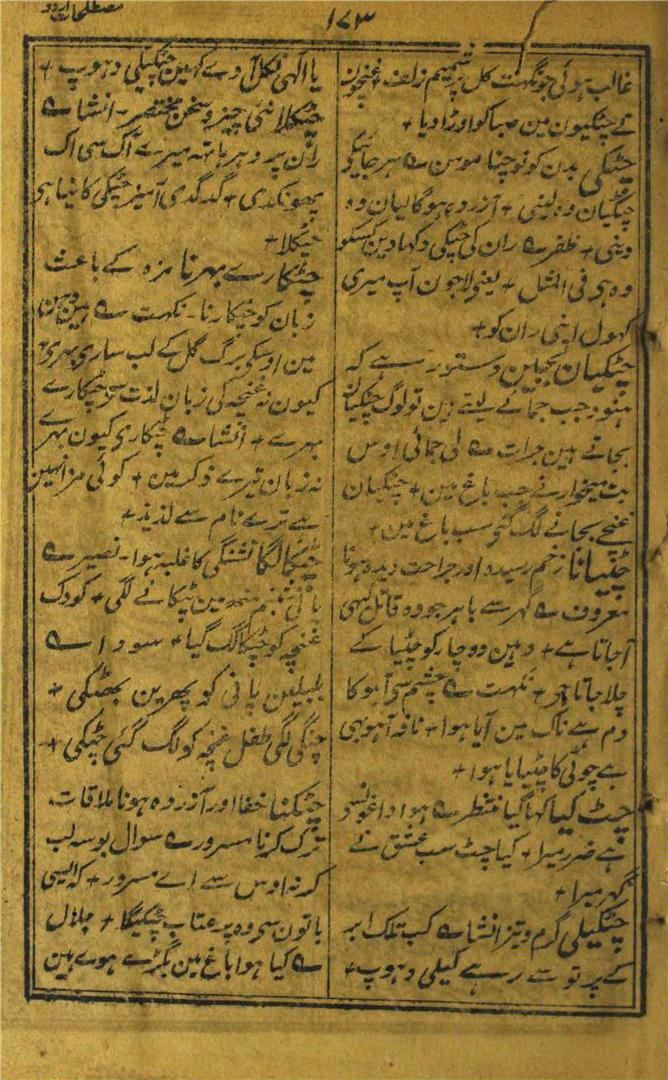 ۱۷۳
غالب ہوئی جو نگہت گل پر شمیم زلف + غنچون
نے چٹکیون مین صبا کو اوڑا دیا +
چٹکی بدن کو نوچنا مومن ے ہر جا یکی
چٹکیان وہ لینی + آزردہ ہو گالیان وہ
دینی + ظفر ے ران کی چٹکی دکھا دین کسکو
وہ ہی فی المثل + یعنی لاجون آپ میری
کھول اپنی ران کو +
چٹکیان دستور ہے کہ
ہنود جب جمائے لیتے ہین تو لوگ چٹکیان
بجاتے ہین جرات ے لی جمائی اوس
بت میخوار نے جب باغ مین + چٹکیان
غنچے بجانے لگ گئے سب باغ مین +
چٹیانا زخم رسیدہ اور جراحت دیدہ ہونا
معروف ے گھر سے باہر جو وہ قاتل کبھی
آجاتا ہے + وہین دو چار کو چٹیا کے
چلا جاتا ہے + نگہت ے چشم سے آہو کا
دم ہے ناک مین آیا ہوا + نافہ آہو بھی
ہے چوٹی کا چٹیایا ہوا +
چٹ کیا کھا گیا منتظر ے ہوا داغونسے
ہے ضرر میرا + کیا چٹ سب عشق نے
گہر میرا +
چٹکیلی گرم و تیز انشا ے کب تلک ابر
کے پرتو سے رہے گیلی دہوپ +
یا الہی نکل آوے کہین چٹکیلی دہوپ +
چٹکلا نئی چیز و سخن مختصر - انشا ے
ران پر دہر ہاتہ میرے آگ سی اک
پھونکدی + گدگدی آمیز چٹکی کا نیا ہی
چٹکلا +
چٹکارے بہرنا مزہ کے باعث
زبان کو چٹکارنا - نگہت ے
مین اوسکی برگ گل کے لب ساری بہرے
کیون نہ غنچہ کی زبان لذت سے چٹکارے
بہرے + انشا ے چٹکاری کیون بہرے
نہ زبان تیرے ذکر مین + کوئی مزا نہین
ہے ترے نام سے لذیذ +
چٹکا لگا تشنگی کا غلبہ ہوا - نصیر ے
پانی شبنم منہ مین ٹپکانے لگی + کودک
غنچہ کو چٹکا لگ گیا + سودا ے
بلبلین پانی کو پھرین بھٹکی +
چنگی لگی طفل غنچہ کو لگ گئی چٹکی +
چٹکنا خفا اور آزردہ ہونا ملاقات
ترک کرنا مسرور ے سوال بوسہ لب
کر نہ اوس سے اے مسرور + کہ ایسی
باتون سے وہ پر عتاب چٹکیگا + جلال
ے کیا ہوا باغ مین بگڑے ہوے ہین